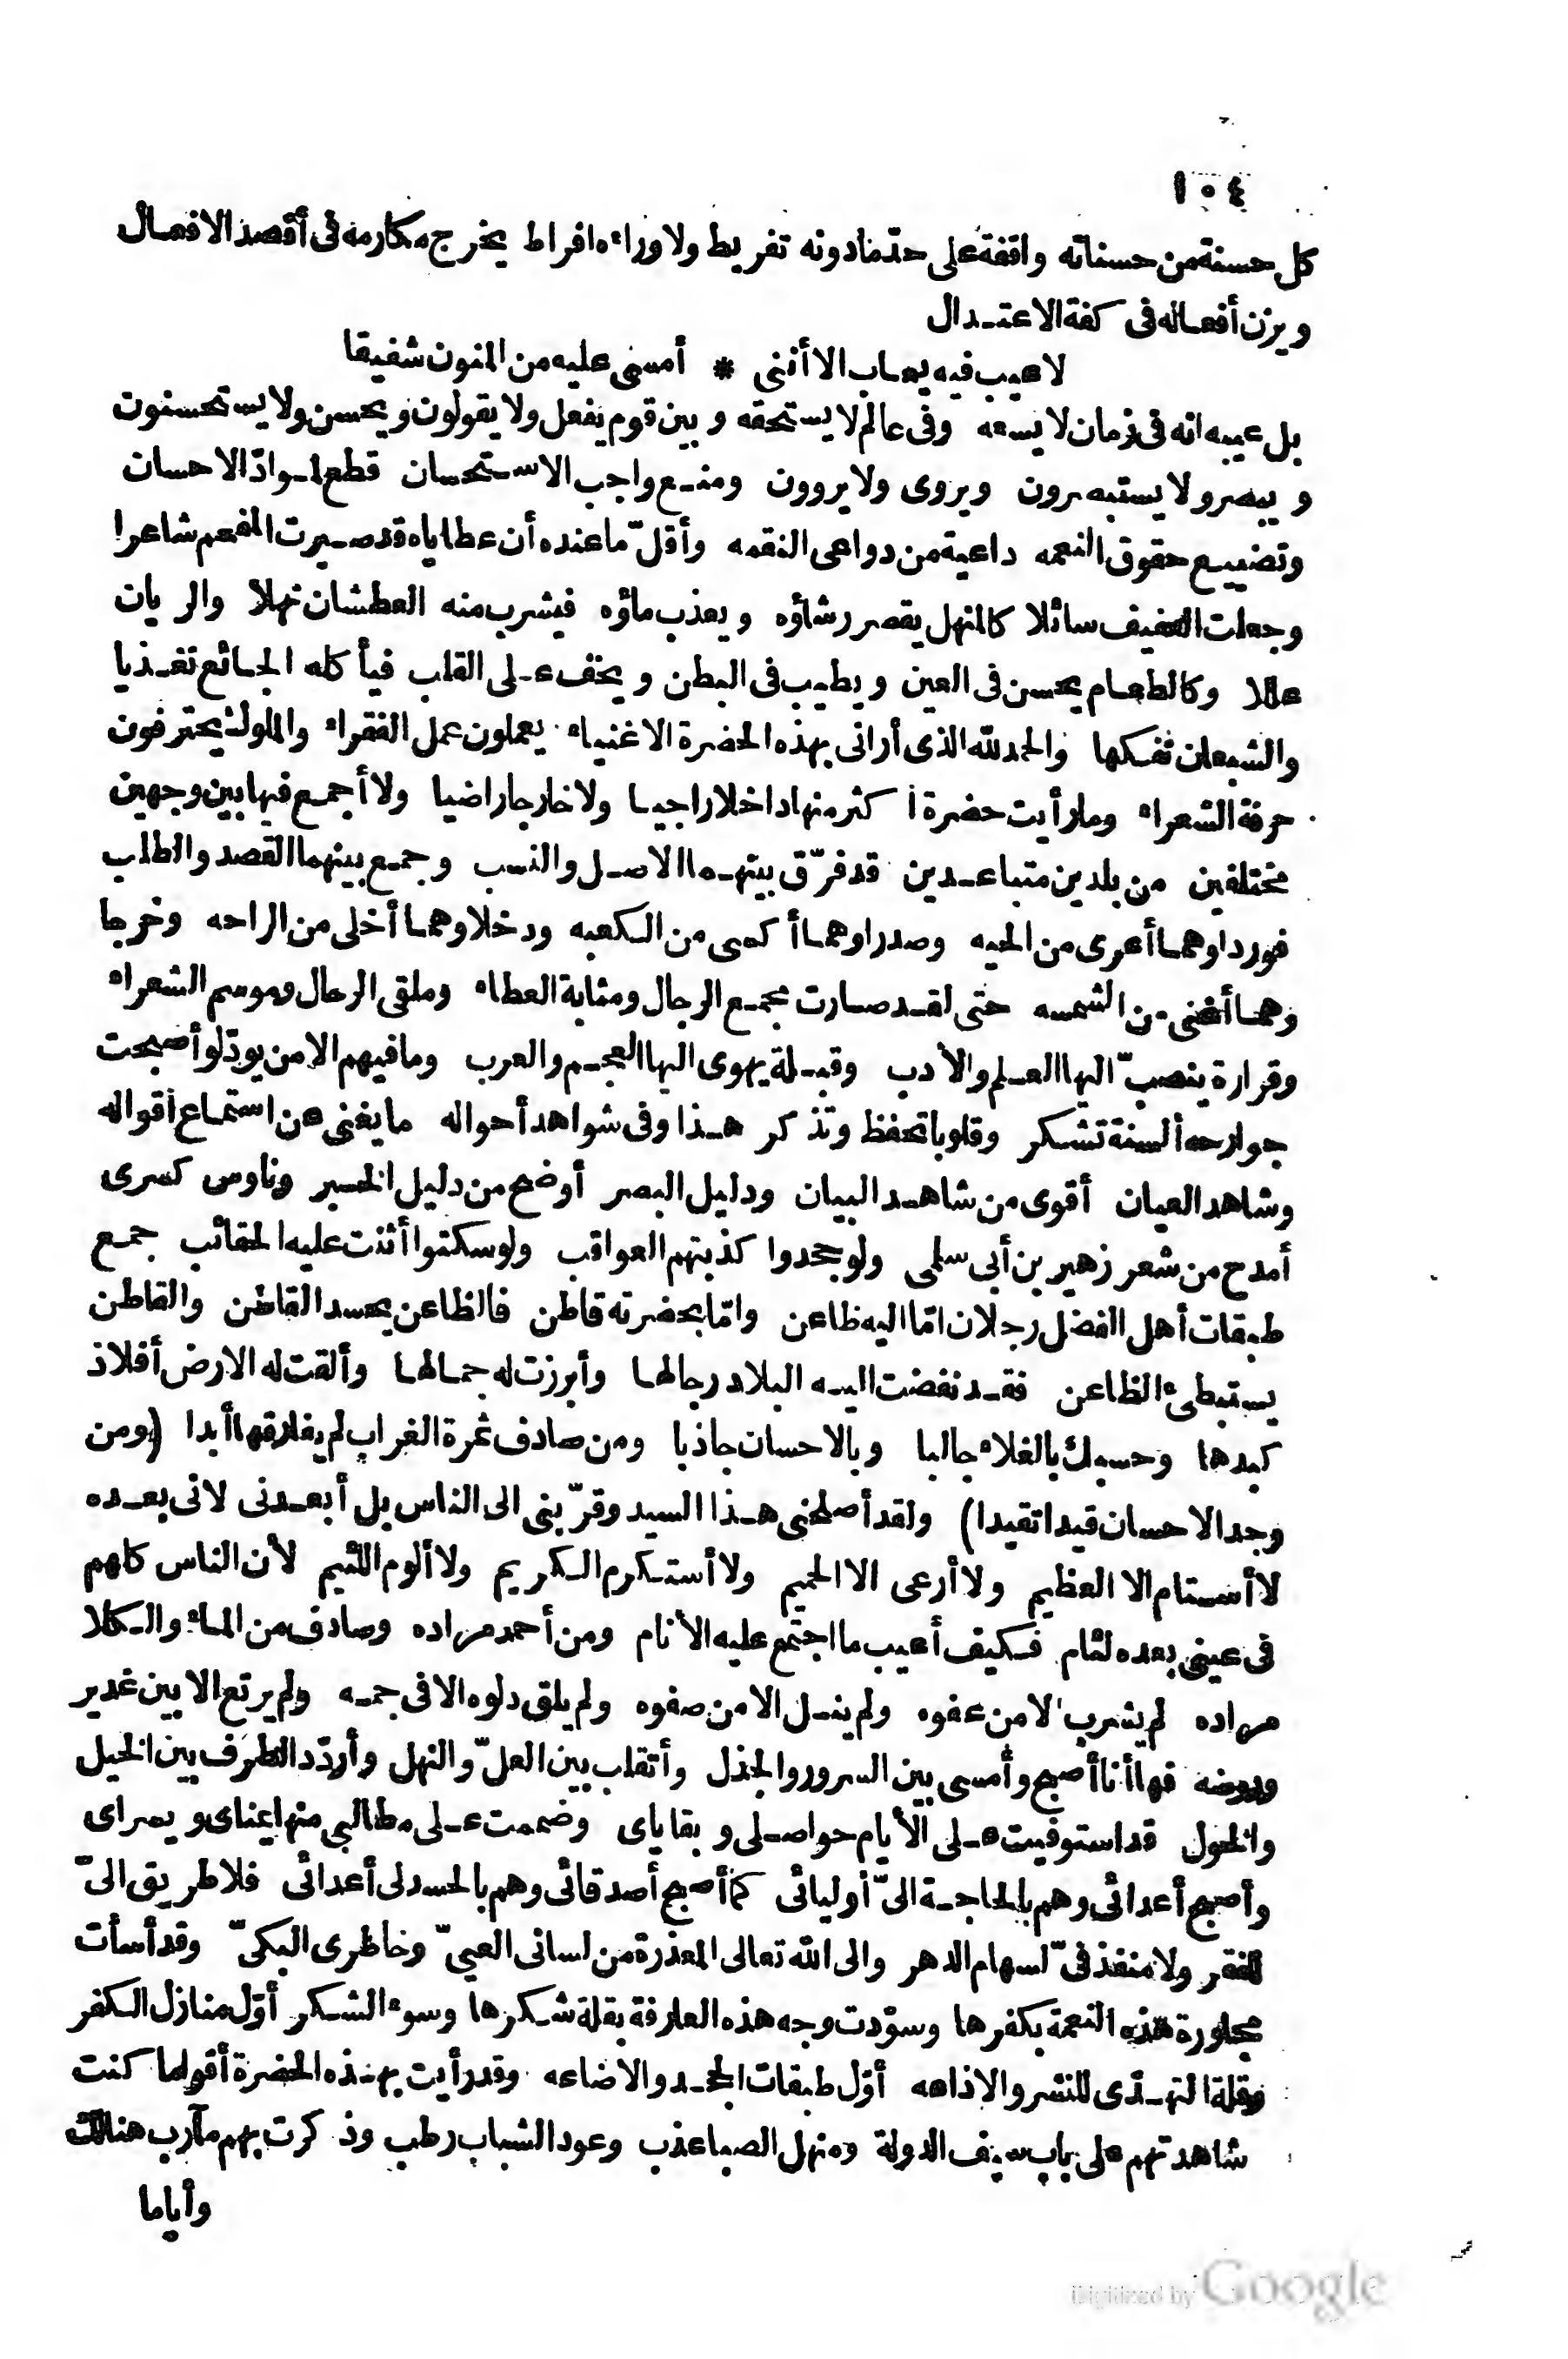 ١٠٤
كل حسنة من حسناته واقفة على حدّ ما دونه تفريط ولا وراءه افراط يخرج مكارمه فى أقصد الافعال
ويزن أفعاله فى كفة الاعتدال
لا عيب فيه يعاب الا أننى * أمسى عليه من المنون شفيقا
بل عيبه انه فى زمان لا يسعه وفى عالم لا يستحقه وبين قوم يفعل ولا يقولون ويحسن ولا يستحسنون
ويبصر ولا يستبصرون ويروى ولا يروون ومنع واجب الاستحسان قطع لموادّ الاحسان
وتضييع حقوق النعمه داعية من دواعى النقمه وأقلّ ما عنده أن عطاياه قد صيرت المفحم شاعرا
وجعلت العفيف سائلا كالمنهل يقصر رشاؤه ويعذب ماؤه فيشرب منه العطشان نهلا والريان
عللا وكالطعام يحسن فى العين ويطيب فى البطن ويخف على القلب فيأكله الجائع تغذيا
والشبعان تفكها والحمد لله الذى أرانى بهذه الحضرة الاغنياء يعملون عمل الفقراء والملوك يحترفون
حرفة الشعراء وما رأيت حضرة أكثر منها داخلا راجيا ولا خارجا راضيا ولا أجمع فيها بين وجهين
مختلفين من بلدين متباعدين قد فرّق بينهما الاصل والنسب وجمع بينهما القصد والطلب
فوردا وهما أعرى من الحيه وصدرا وهما أكسى من الكعبه ودخلا وهما أخلى من الراحه وخرجا
وهما أغنى من الشمسه حتى لقد صارت مجمع الرجال ومثابة العطاء وملقى الرحال وموسم الشعراء
وقرارة ينصبّ اليها العلم والأدب وقبلة يهوى اليها العجم والعرب وما فيهم الا من يودّ لو أصبحت
جوارحه ألسنة تشكر وقلوبا تحفظ وتذكر هذا وفى شواهد أحواله ما يغنى عن استماع أقواله
وشاهد العيان أقوى من شاهد البيان ودليل البصر أوضح من دليل الخبر وناوس كسرى
أمدح من شعر زهير بن أبى سلمى ولو جحدوا كذبتهم العواقب ولو سكتوا أثنت عليه الحقائب جمع
طبقات أهل الفضل رجلان امّا اليه ظاعن وامّا بحضرته قاطن فالظاعن يحسد القاطن والقاطن
يستبطئ الظاعن فقد نفضت اليه البلاد رجالها وأبرزت له جمالها وألقت له الارض أفلاذ
كبدها وحسبك بالغلاء جالبا وبالاحسان جاذبا ومن صادف ثمرة الغراب لم يفارقها أبدا (ومن
وجد الاحسان قيدا تقيدا) ولقد أصلحنى هذا السيد وقرّبنى الى الناس بل أبعدنى لانى بعده
لا أستام الا العظيم ولا أرعى الا الجميم ولا أستكرم الكريم ولا ألوم اللئيم لأن الناس كلهم
فى عينى بعده لئام فكيف أعيب ما اجتمع عليه الأنام ومن أحمد مراده وصادف من الماء والكلا
مراده لم يشرب الا من عفوه ولم ينهل الا من صفوه ولم يلق دلوه الا فى جمه ولم يرتع الا بين غدير
وروضه فها أنا أصبح وأمسى بين السرور والجذل وأتقلب بين العلّ والنهل وأردّد الطرف بين الخيل
والخول قد استوفيت على الأيام حواصلى وبقاياى وضممت على مطالبى منها يمناى ويسراى
وأصبح أعدائى وهم بالحاجة الىّ أوليائى كما أصبح أصدقائى وهم بالحسد لى أعدائى فلا طريق الىّ
للفقر ولا منفذ فىّ لسهام الدهر والى الله تعالى المعذرة من لسانى العيىّ وخاطرى البكىّ وقد أسأت
مجاورة هذه النعمة بكفرها وسوّدت وجه هذه العارفة بقلة شكرها وسوء الشكر أوّل منازل الكفر
وقلة التهدّى للنشر والاذاعه أوّل طبقات الجحد والاضاعه وقد رأيت بهذه الحضرة أقواما كنت
شاهدتهم على باب سيف الدولة ومنهل الصبا عذب وعود الشباب رطب وذكرت بهم مآرب هنالك
وأياما
Digitized by Google